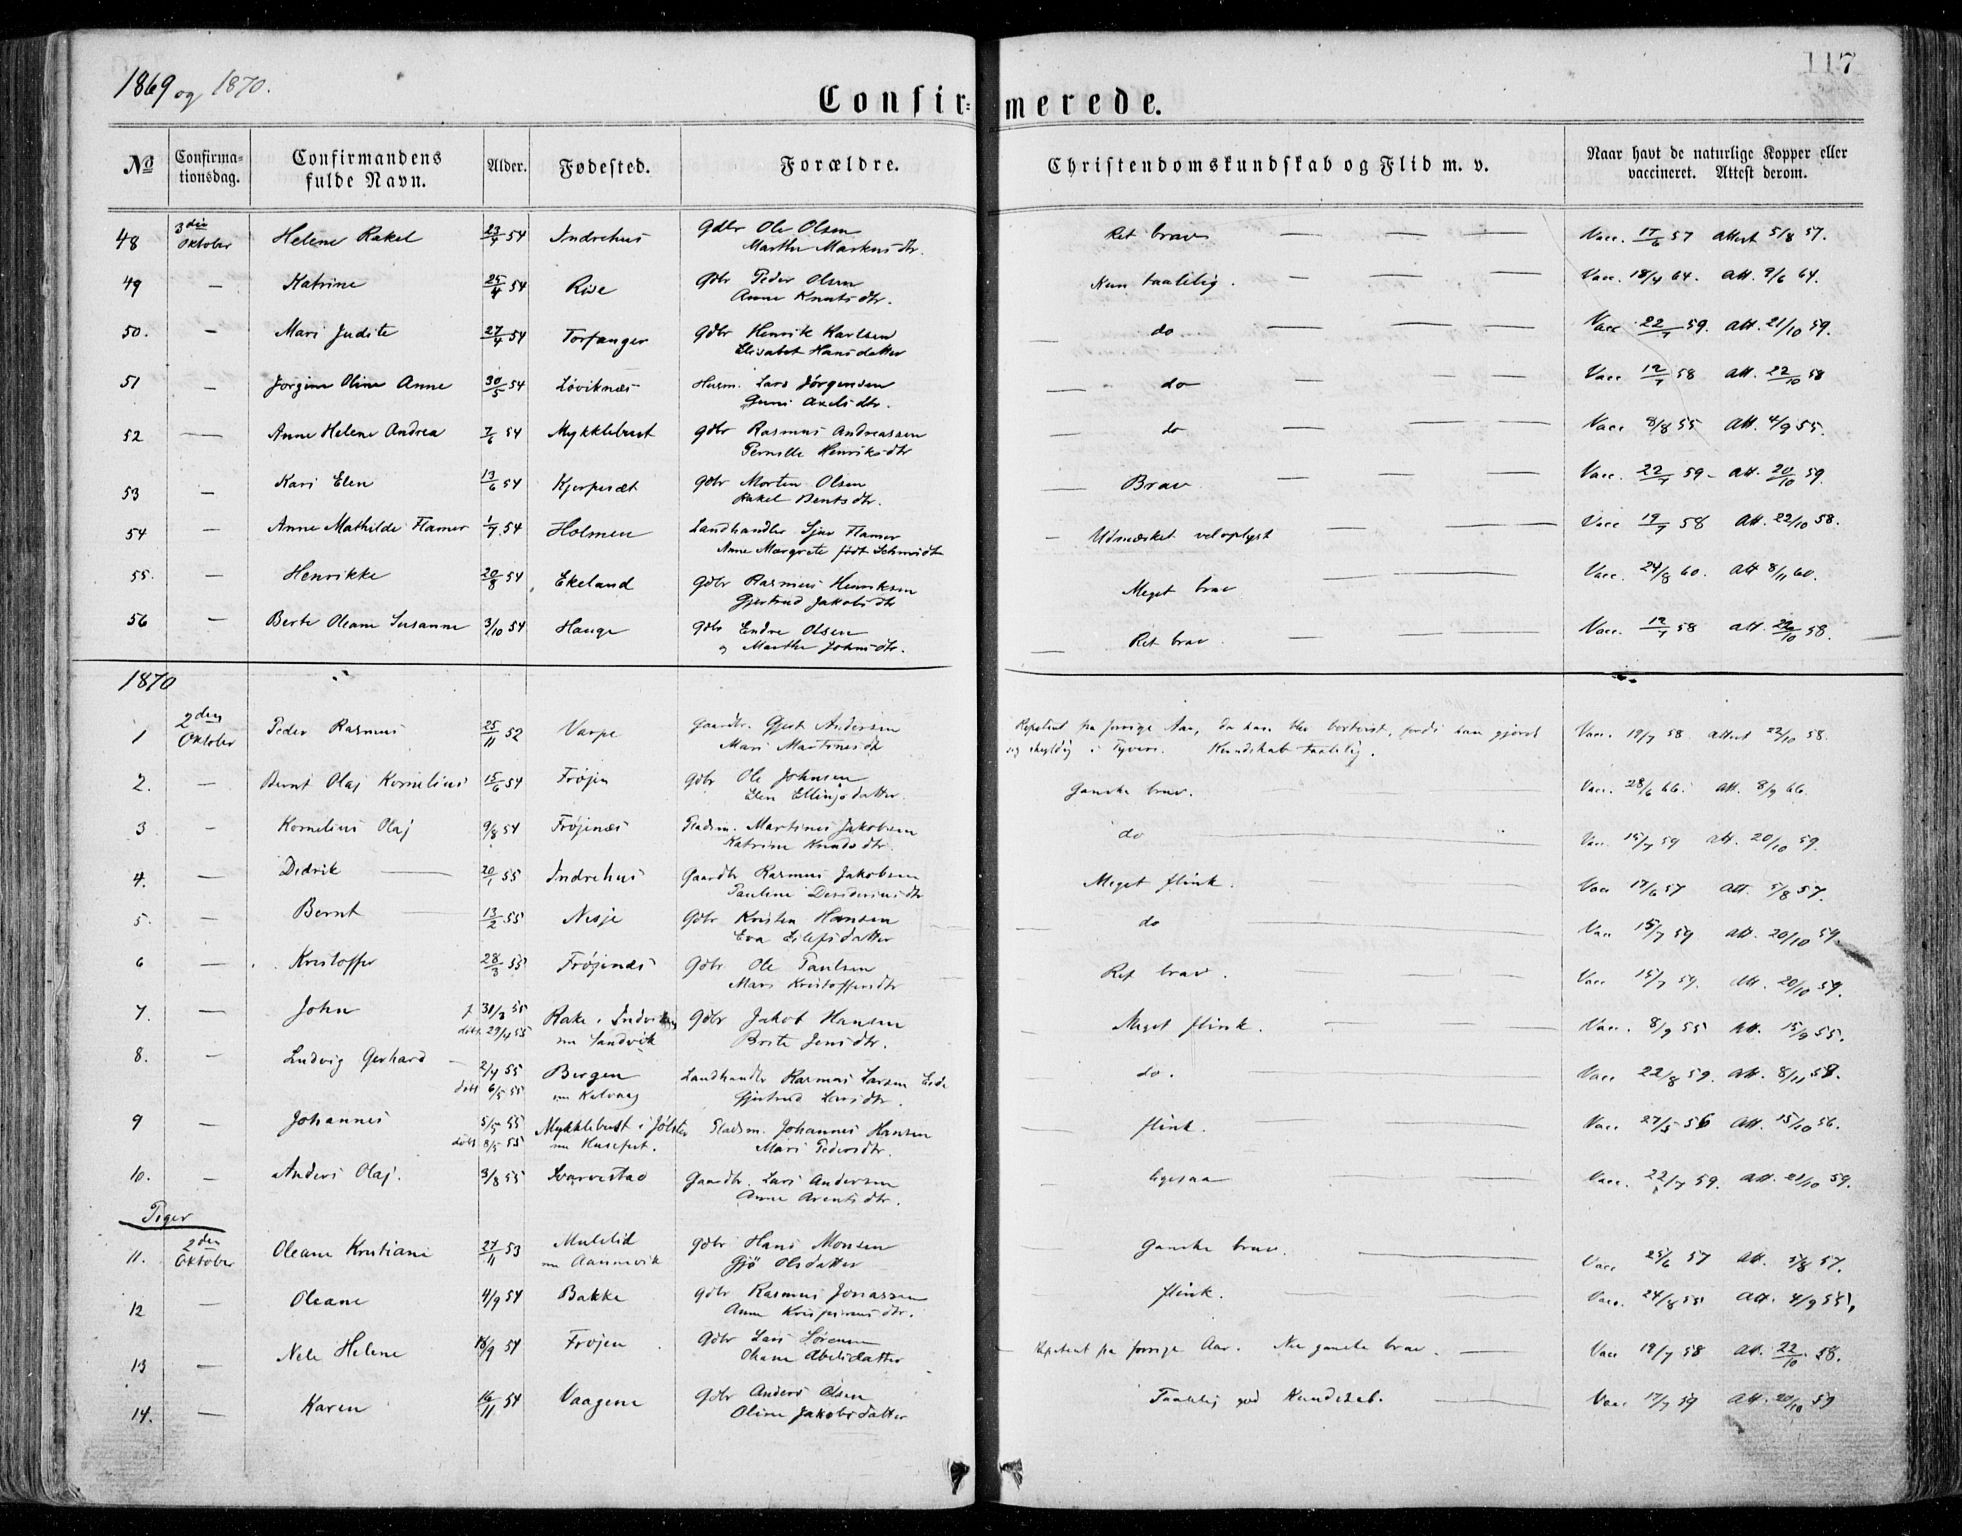 117
1869 og 1870.
Confirmerede.
No Confirmationsdag. Confirmandens fulde Navn. Alder. Fødested. Forældre. Christendomskundskab og Flid m. v. Naar havt de naturlige Kopper eller vaccineret. Attest derom.
48 3die Oktober Helene Rakel 23/4 54 Indrehus Gdbr Ole Olsen Ret brav — — — — Vacc. 17/6 57 attest 5/8 57.
Marthe Markusdtr.
49 — Katrine 25/4 54 Rise Gbr Peder Olsen Kun taalelig. — — — — Vacc. 18/4 64. Att. 9/6 64.
Anne Knutsdtr.
50. — Mari Judite 27/4 54 Torfanger Gdbr Henrik Karlsen do — — — — Vacc 22/7 59. Att. 21/10 59.
Elisabet Hansdatter
51 — Jorgine Oline Anne 30/5 54 Løviknæs Husm. Lars Jørgensen do — — — — Vacc 12/7 58 Att. 22/10 58
Guni Axelsdtr.
52 — Anne Helene Andrea 7/6 54 Mykklebust Gdbr Rasmus Andreassen do — — — — Vacc 8/8 55 Att. 4/9 55.
Pernille Henriksdtr
53 — Kari Elen 13/6 54 Kjerpesæt Gdbr Morten Olsen Brav — — — — Vacc. 22/7 59 - Att. 20/10 59.
Rakel Bentsdtr.
54 — Anne Mathilde Flamer 1/7 54 Holmen Landhandler Sjur Flamer Udmærket veloplyst — — — Vacc 19/7 58 Att. 22/10 58.
Anne Margrete født Schmidt
55. — Henrikke 20/8 54 Ekeland Gdbr Rasmus Henriksen Meget brav Vacc. 24/8 60. Att 8/11 60.
Gjertrud Jakobsdtr
56 — Berte Oleane Susanne 3/10 54 Hauge Gdbr Endre Olsen Ret brav. — — — — Vacc. 12/7 58 Att. 22/10 58.
og Marthe Johnsdtr.
1870
1 2den Oktober Peder Rasmus 25/11 52 Varpe Gaardbr. Gjert Andersen Repetent fra forrige Aar, da han blev bortvist, fordi han gjorde Vacc. 19/7 58. attest 22/10 58.
Mari Martinesdtr sig skyldig i Tyveri. Kundskab taalelig.
2. — Bernt Olaj Kornelius 15/6 54 Frøjen Gdbr Ole Johnsen Ganske brav. Vacc. 28/6 66. Att. 8/9 66.
Elen Ellingsdatter.
3 — Kornelius Olaj 9/8 54 Frøjenæs Pladsm. Martines Jakobsen do Vacc. 15/7 59 Att. 20/10 59.
Katrine Knudsdtr.
4. — Didrik — 20/1 55 Indrehus Gaardbr Rasmus Jakobsen Meget flink. Vacc 17/6 57 Att. 5/8 57.
Pauline Desideriusdtr
5. — Bernt — 13/2 55 Nesje Gdbr Kristen Hansen do Vacc 15/7 59 Att. 20/10 59.
Eva Eilefsdatter
6 — Kristoffer 28/3 55 Frøjenæs Gdbr Ole Paulsen Ret brav. Vacc 15/7 59. Att. 20/10 59.
Mari Kristoffersdtr
7. — John f 31/3 55 Rake i Indviken Gdbr Jakob Hansen Meget flink. Vacc. 8/9 55 Att. 15/9 55.
døbt. 29/4 55 nu Sandvik Brite Jensdtr.
8. — Ludvig Gerhard — 2/4 55 Bergen Landhandler Rasmus Larsen Eide do. Vacc 22/8 59. Att. 8/11 58.
døbt 6/5 55 nu Kalvaag Gjertrud Larsdtr.
9 — Johannes 5/5 55 Mykklebust i Jølster Pladsm. Johannes Hansen flink. Vacc. 27/5 56 Att. 15/10 56.
døbt 8/5 55 nu Husefest. Mari Pedersdtr.
10. — Anders Olaj. 3/8 55 Gaardbr. Lars Andersen ligesaa Vacc. 22/7 59. Att. 21/10 59.
Anne Arentsdtr.
Piger
11. 2den Oktober Oleane Kristiane 27/11 53 Mulelid Gdbr Hans Monsen Ganske brav. Vacc 25/6 57 Att. 5/8 57.
nu Aannevik Gjø Olsdatter
12 — Oleane 4/9 54 Bakke Gdbr Rasmus Jonassen flink. Vacc. 24/8 55 Att. 4/9 55,
Anne Krispinusdtr.
13 — Nele Helene 18/9 54 Frøjen Gdbr Lars Sørensen Repetent fra forrige Aar. Nu ganske brav. — Vacc 19/7 58 Att. 22/10 58.
Oleane Abelsdatter
14. — Karen 16/11 54 Vaagene Gdbr Anders Olsen Taalelig god Kundskab. Vacc 17/7 59 Att. 20/10 59
Oline Jakobsdatter